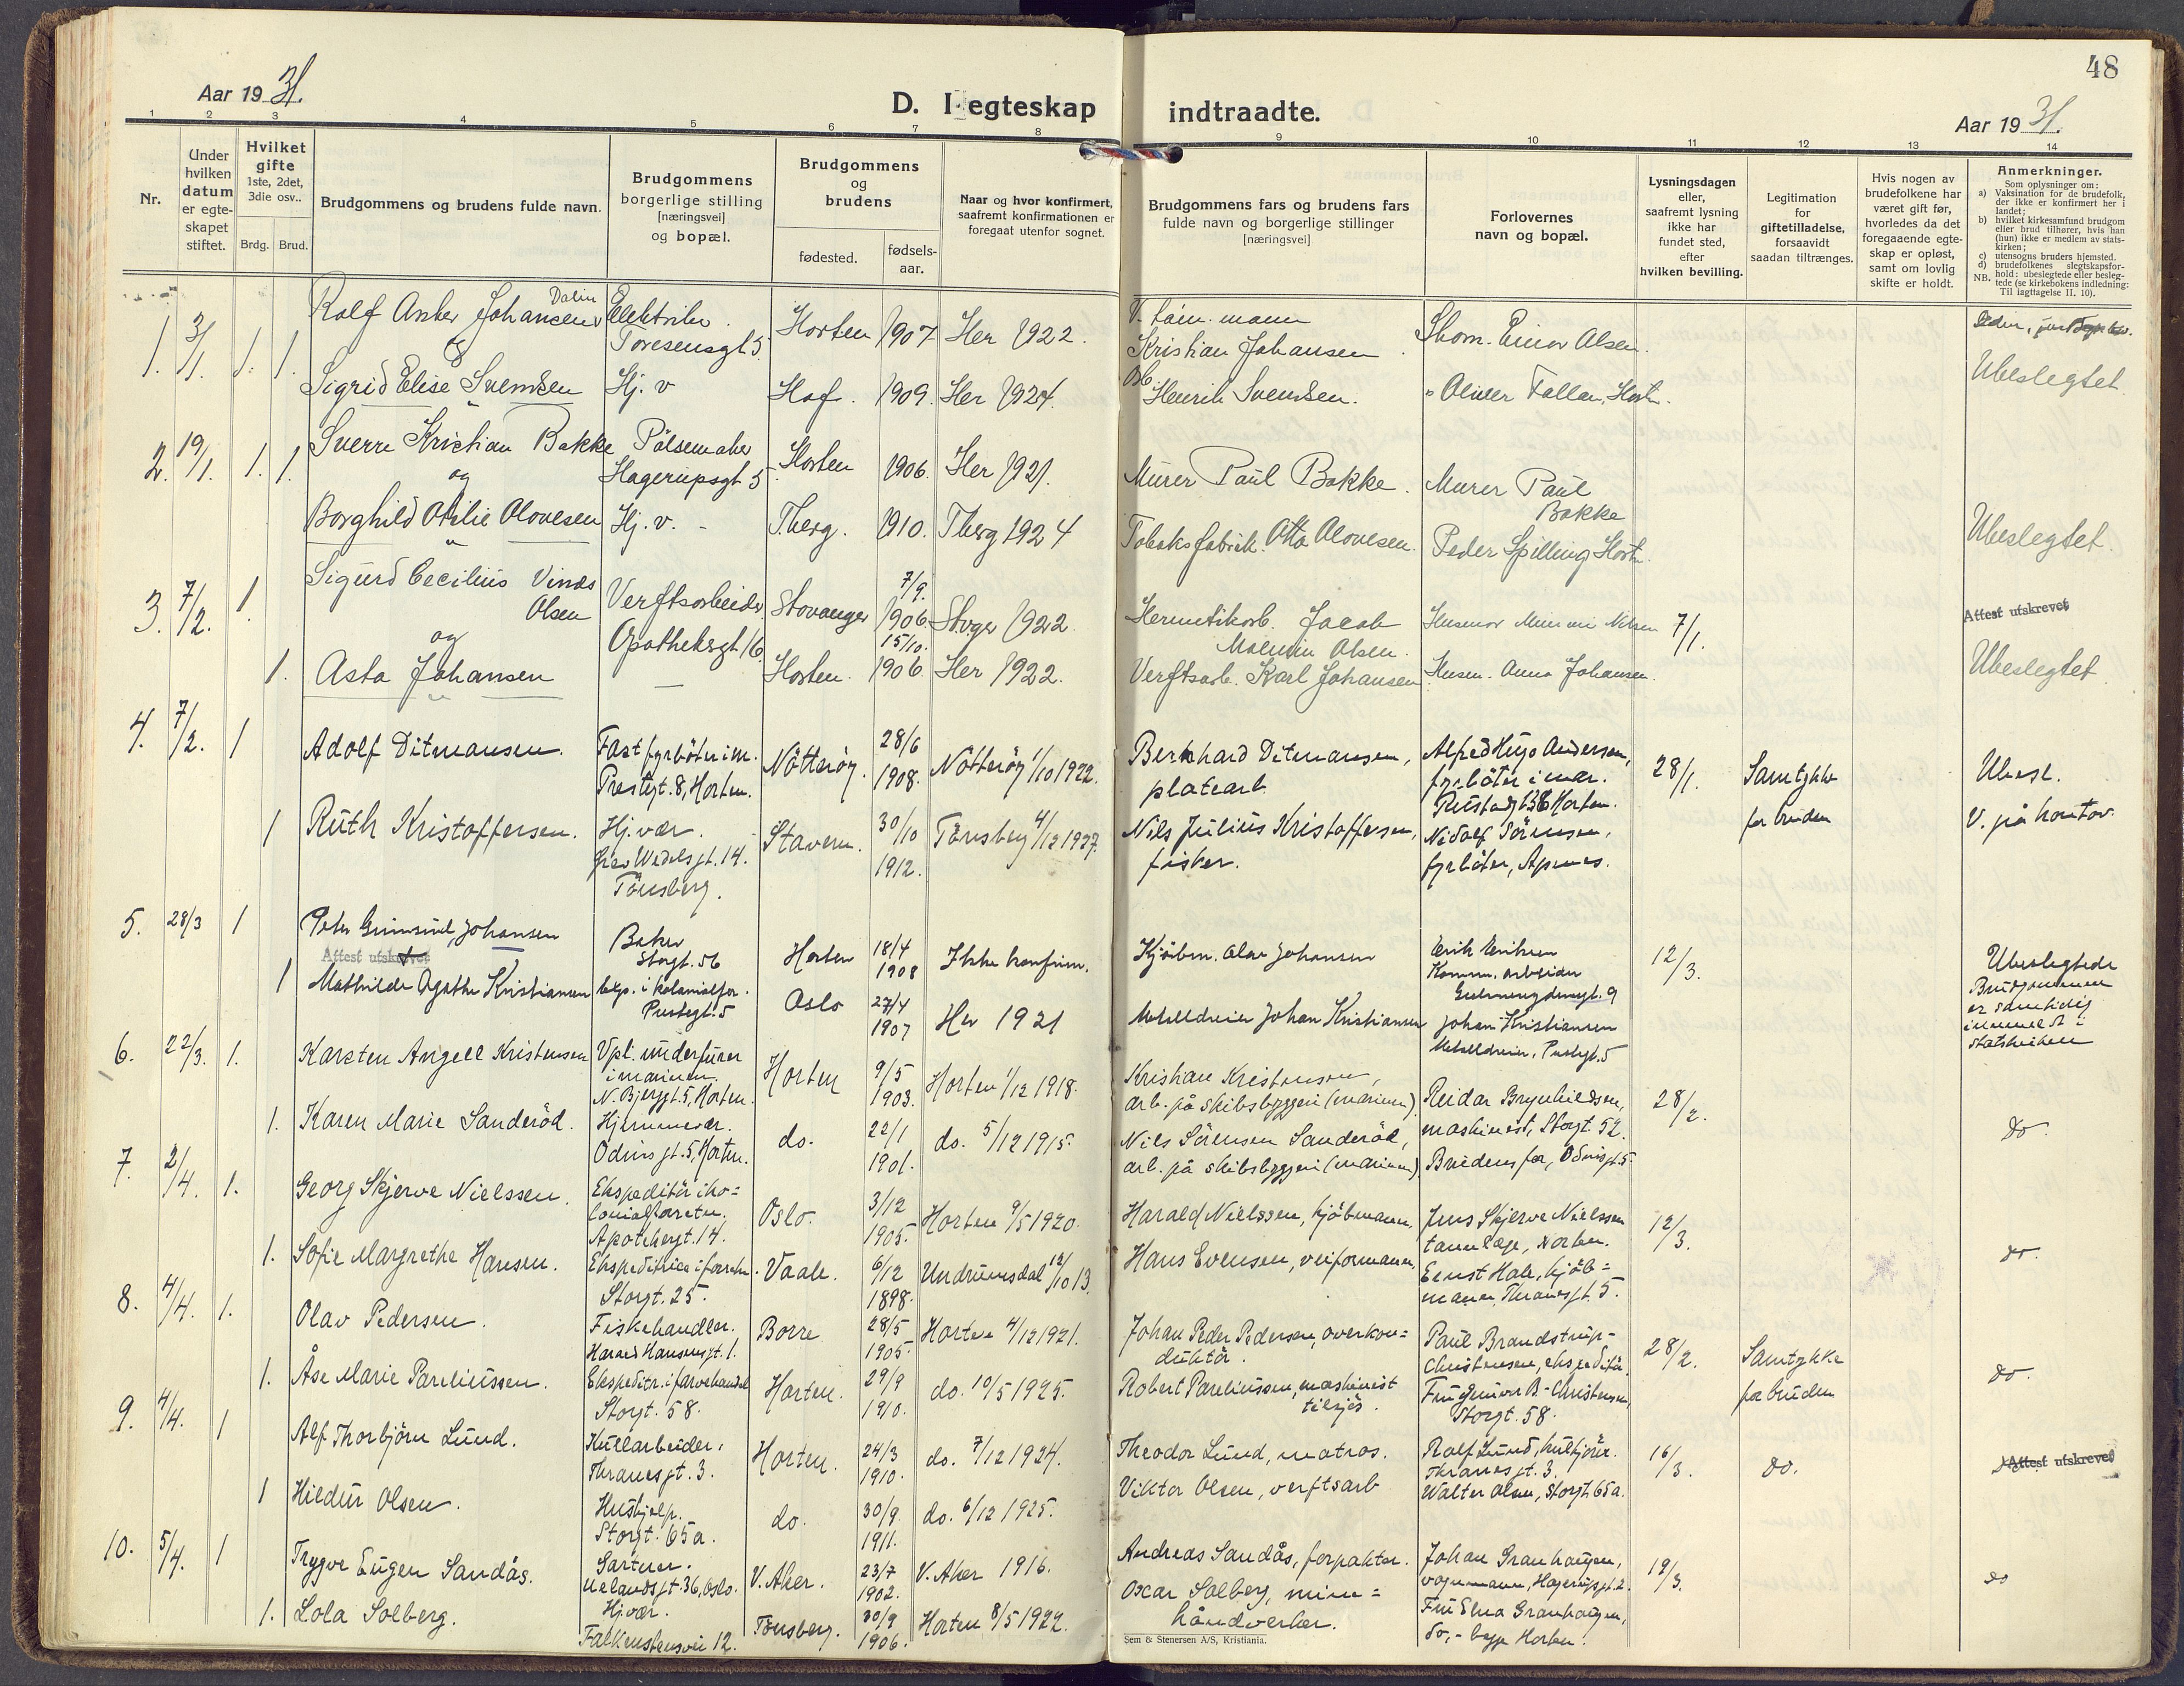 48
Aar 19 31.
D. I egteskap indtraadte.
Aar 19 31.
1 2 3 4 5 6 7 8 9 10 11 12 13 14
Nr.
Under hvilken datum er egte-skapet stiftet.
Hvilket gifte 1ste, 2det, 3die osv..
Brdg. Brud.
Brudgommens og brudens fulde navn.
Brudgommens borgerlige stilling [næringsvei] og bopæl.
Brudgommens og brudens
fødested.
fødsels-aar.
Naar og hvor konfirmert, saafremt konfirmationen er foregaat utenfor sognet.
Brudgommens fars og brudens fars fulde navn og borgerlige stillinger [næringsvei]
Forlovernes navn og bopæl.
Lysningsdagen eller, saafremt lysning ikke har fundet sted, efter hvilken bevilling.
Legitimation for giftetilladelse, forsaavidt saadan tiltrænges.
Hvis nogen av brudefolkene har været gift før, hvorledes da det foregaaende egte-skap er opløst, samt om lovlig skifte er holdt.
Anmerkninger.
Som oplysninger om:
a) Vaksination for de brudefolk, der ikke er konfirmert her i landet;
b) hvilket kirkesamfund brudgom eller brud tilhører, hvis han (hun) ikke er medlem av stats-kirken;
c) utensogns bruders hjemsted.
d) brudefolkenes slegtskapsfor-hold: ubeslegtede eller besleg-tede (se kirkebokens indledning:
NB. Til iagttagelse II. 10).
1. 3/1. 1. 1. Rolf Anker Johansen
og
Sigrid Elise Svendsen
Toresensgt 5.
Hj. v
Horten 1907 Her 1922.
Hof. 1909. Her 1924.
Kristian Johansen
Henrik Svendsen.
Thom. Einar Olsen.
Ubeslegtet
2. 19/1. 1. 1. Sverre Kristian Bakke
og
Borghild Otilie Olovesen
Pölsemaker
Hagerupsgt 5
Hj. v.
Horten 1906. Her 1921.
T.berg. 1910. Tberg 1924
Murer Paul Bakke.
Otto Olovesen.
Murer Paul
Bakke
Peder Spilling
Ubeslegtet.
3. 7/2. 1 Sigurd Cecilius
Olsen
og
1. Asta Johansen
Verftsarbeider
Apothekergt 16
Stavanger 7/9. 1906. Stvger 1922
Horten. 15/10. 1906 Her 1922.
Jacob
Olsen.
Verftsarb. Karl Johansen
Husm. Anna Johansen.
7/1.
Attest utskrevet
Ubeslegtet
4. 7/2. 1 Adolf Ditmansen.
Fast fyrböter i m.
Prestegt. 8, Horten.
Nötteröy. 28/6 1908. Nötteröy 1/10 1922.
Bernhard Ditmansen,
platearb.
Alfred Hugo Andersen,
fyrböter i mar.
28/1. Samtykke
for bruden
Ubesl.
V. på kontor.
1 Ruth Kristoffersen.
Hj. vær.
Wedels gt. 14.
Tönsberg.
Stavern. 30/10 1912. Tönsberg 4/12 1927.
Nils Julius Kristoffersen,
fisker.
Sörensen,
fyrböter,
5. 28/3 1 Johansen
Attest utskrevet
1 Mathilde Agathe Kristiansen
Baker
Storgt. 56
Prestegt. 5
Horten 18/4 1908 Ikke konfirm.
Oslo 27/4 1907 Her 1921
Kjöbm. Olav Johansen
Johan Kristiansen
Erik Eriksen
Komm. arbeider
Johan Kristiansen
12/3.
Ubeslegtede
Brudgommen
er samtidig
innmeldt i
statskirken
6. 22/3. 1. Karsten Angell Kristensen
1. Karen Marie Sanderöd.
i marinen.
N. Bjerggt. 5, Horten.
Hjemmevær.
Odins gt. 5, Horten.
Horten 9/5 1903. Horten 1/12 1918.
do. 22/1 1901. do. 5/12 1915.
Kristian Kristensen,
arb. på skibsbyggeri (marinen)
Nils Sörensen Sanderöd,
arb. på skibsbyggeri (marinen)
Reidar Brynhildsen,
maskinist, Storgt. 52.
Brudens far, Odinsgt. 5.
28/2.
do.
7. 2/4. 1. Georg Skjerve Nielssen.
1. Sofie Margrethe Hansen.
Ekspeditör i ko=
Apotekergt. 14.
Storgt. 25.
Oslo. 3/12 1905. Horten 9/5 1920.
Vaale. 6/12 1898. Undrumsdal 12/10 13.
Harald Nielssen, kjöbmann.
Hans Evensen, veiformann.
Jens Skjerve Nielssen
tannlæge, Horten.
Ernst Hals, kjöb=
mann, Thranesgt. 5.
12/3.
do.
8. 4/4. 1. Olav Pedersen.
1. Åse Marie Pareliussen.
Fiskehandler.
Harald Hansensgt. 1.
Ekspeditr. i farvehandel
Storgt. 58.
Borre. 28/5 1905. Horten 4/12 1921.
Horten. 29/9 1910. do. 10/5 1925.
Johan Peder Pedersen, overkon=
duktör.
Robert Pareliussen, maskinist
tilsjös.
Paul Brandstrup-
Christensen, ekspeditör.
Storgt. 58.
28/2. Samtykke
for bruden
do.
9. 4/4. 1 Alf Thorbjörn Lund.
1 Hildur Olsen.
Kullarbeider.
Thranesgt. 3.
Hushjelp.
Storgt. 65a.
Horten. 24/3 1910. do. 7/12 1924.
do. 30/9. 1911. do. 6/12 1925.
Theodor Lund, matros.
Viktor Olsen, verftsarb
Rolf Lund, kulkjörer.
Thranesgt. 3.
Walter Olsen, Storgt. 65a.
16/3. do.
Attest utskrevet
10. 5/4. 1 Trygve Eugen Sandås.
1. Lola Solberg.
Gartner.
Uelandsgt. 36, Oslo.
Hj. vær.
Falkenstensvei 12.
V. Aker. 23/7 1902. V. Aker 1916.
Tönsberg. 30/9 1906. Horten 8/5 1922.
Andreas Sandås, forpakter.
Oscar Solberg, mine=
håndverker.
Johan Granhaugen,
vognmann, Hagerupsgt. 2.
Fru Elna Granhaugen,
do, - begge Horten.
19/3.
do
Sem & Stenersen A/S, Kristiania.